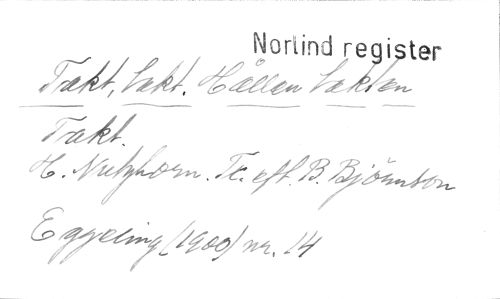 Norlind register
Takt, takt. Hållen takten
Takt.
H. Nutzhorn. Tc. eft. B. Björnson
Eggeling (1900) nr. 14